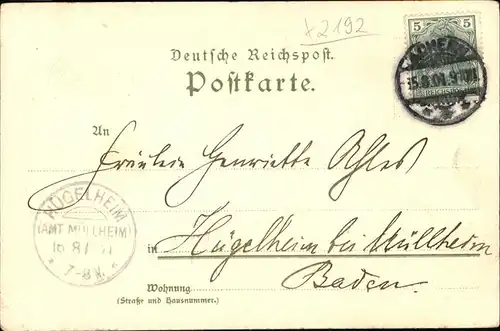 x2192
5 5
REICHSPOST
15.8.01.9
Deutsche Reichspost.
Postkarte.
An
Fräulein Henriette Ahles
HÜGELHEIM
(AMT MÜLLHEIM)
16 8 01
7-8V.
in Hügelheim bei Müllheim
Baden.
Wohnung
(Straße und Hausnummer.)